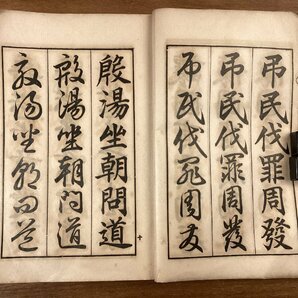 弔民伐罪周發
弔民伐罪周發
弔民伐罪周發
殷湯坐朝問道
殷湯坐朝問道
殷湯坐朝問道
十